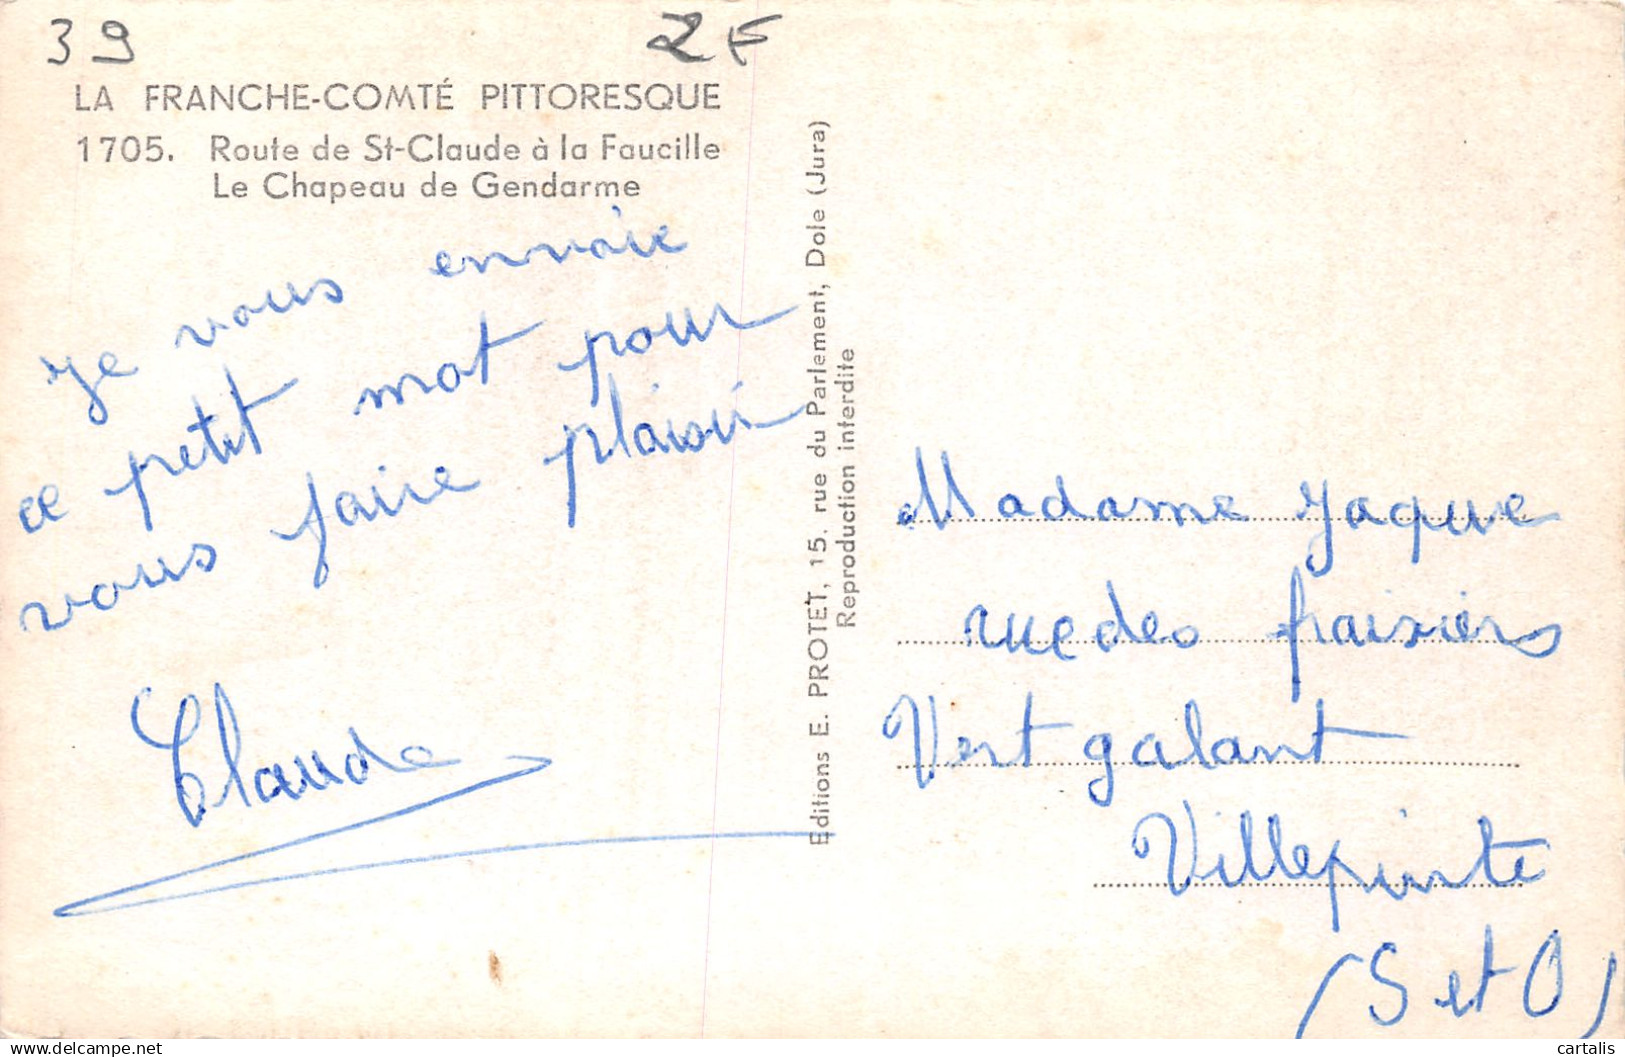 39
2F
LA FRANCHE-COMTÉ PITTORESQUE
1705. Route de St-Claude à la Faucille
Le Chapeau de Gendarme
Je vous envoie
ce petit mot pour
vous faire plaisir
Claude
Editions E. PROTET, 15, rue du Parlement, Dole (Jura)
Reproduction interdite
Madame Jaque
rue des fraisiers
Vert galant
Villepinte
(S et O)
delcampe.net
cartalis